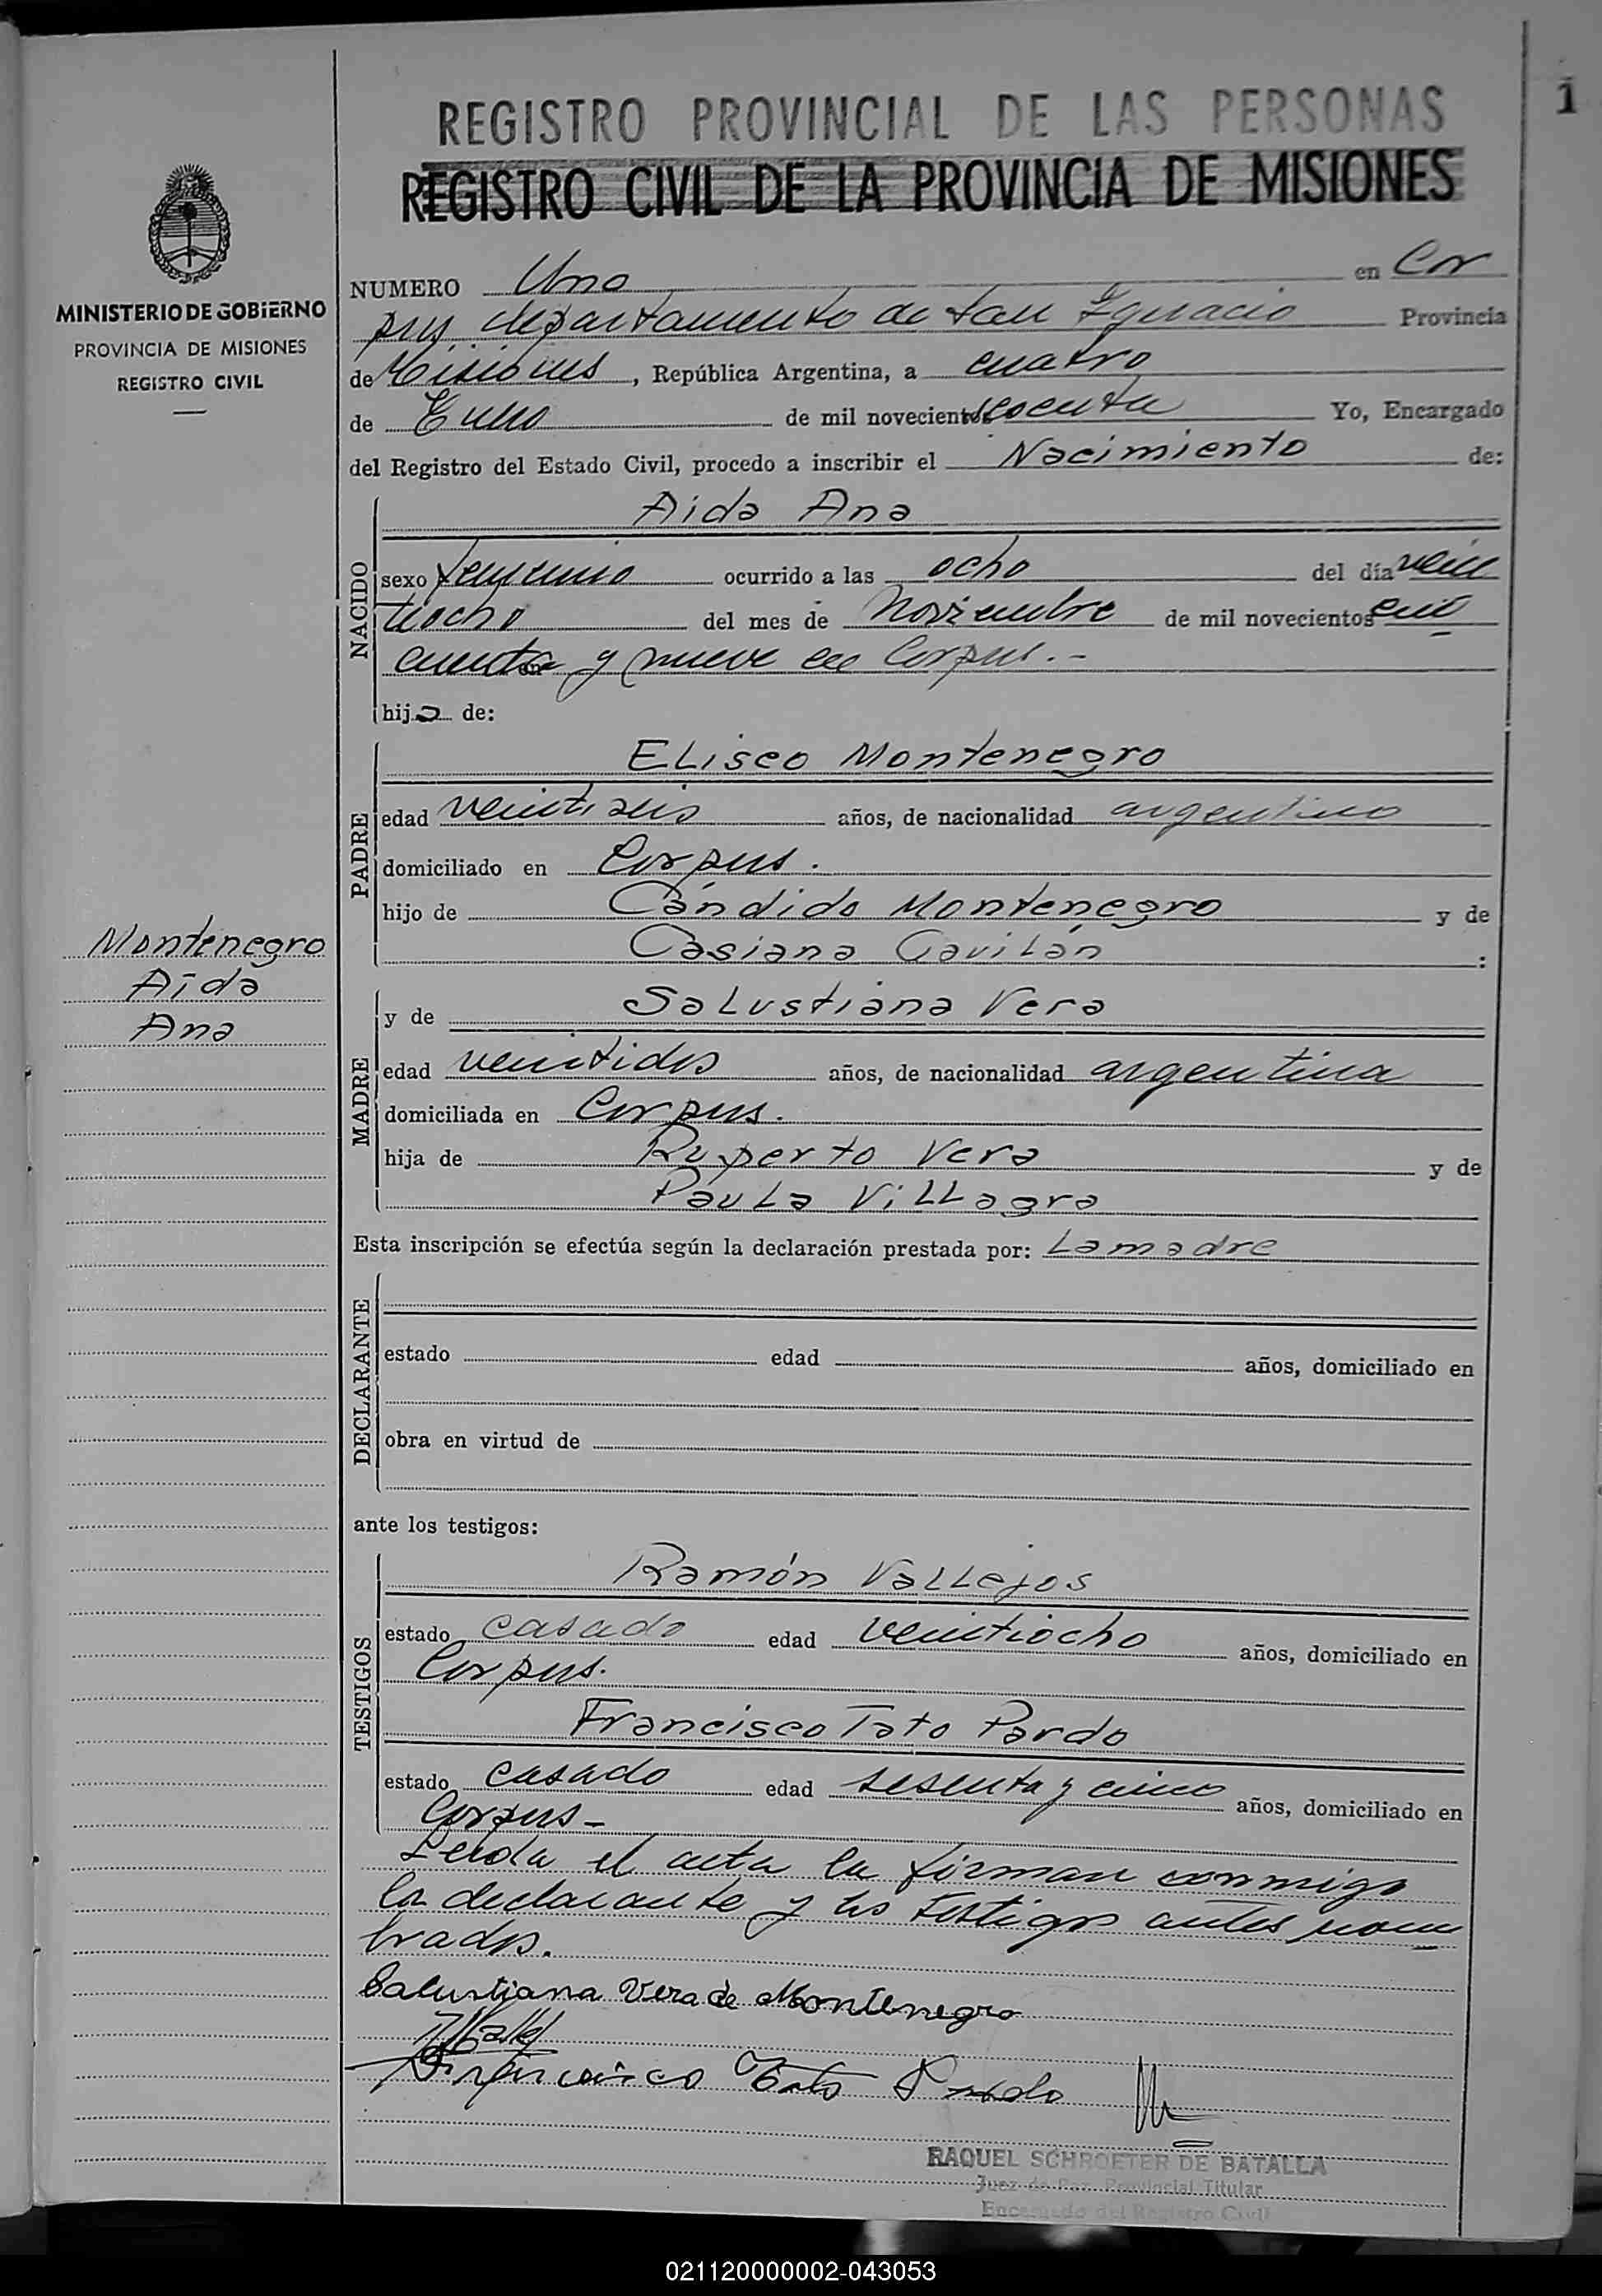 1
REGISTRO PROVINCIAL DE LAS PERSONAS
REGISTRO CIVIL DE LA PROVINCIA DE MISIONES
MINISTERIO DE GOBIERNO
PROVINCIA DE MISIONES
REGISTRO CIVIL
NUMERO Uno en Cor
pus, departamento de San Ignacio Provincia
de Misiones, República Argentina, a cuatro
de Enero de mil novecientos secenta Yo, Encargado
del Registro del Estado Civil, procedo a inscribir el Nacimiento de:
NACIDO
Aida Ana
sexo femenino ocurrido a las ocho del día vein
tiocho del mes de Noviembre de mil novecientos cin
cuenta y nueve en Corpus.-
hija de:
PADRE
Eliseo Montenegro
edad veintiseis años, de nacionalidad argentino
domiciliado en Corpus.
hijo de Cándido Montenegro y de
Casiana Gavilán :
Montenegro
Aída
Ana
MADRE
y de Salustiana Vera
edad veintidos años, de nacionalidad argentina
domiciliada en Corpus.
hija de Ruperto Vera y de
Paula Villagra
Esta inscripción se efectúa según la declaración prestada por: La madre
DECLARANTE
estado edad años, domiciliado en
obra en virtud de
ante los testigos:
TESTIGOS
Ramón Vallejos
estado casado edad veintiocho años, domiciliado en
Corpus.
Francisco Tato Pardo
estado casado edad sesenta y cinco años, domiciliado en
Corpus-
Leida el acta la firman conmigo
la declarante y los testigos antes nom
brados.
Salustiana Vera de Montenegro
Francisco Tato Pardo
RAQUEL SCHROETER DE BATALLA
Juez de Paz Provincial Titular
Encargado del Registro Civil
021120000002-043053